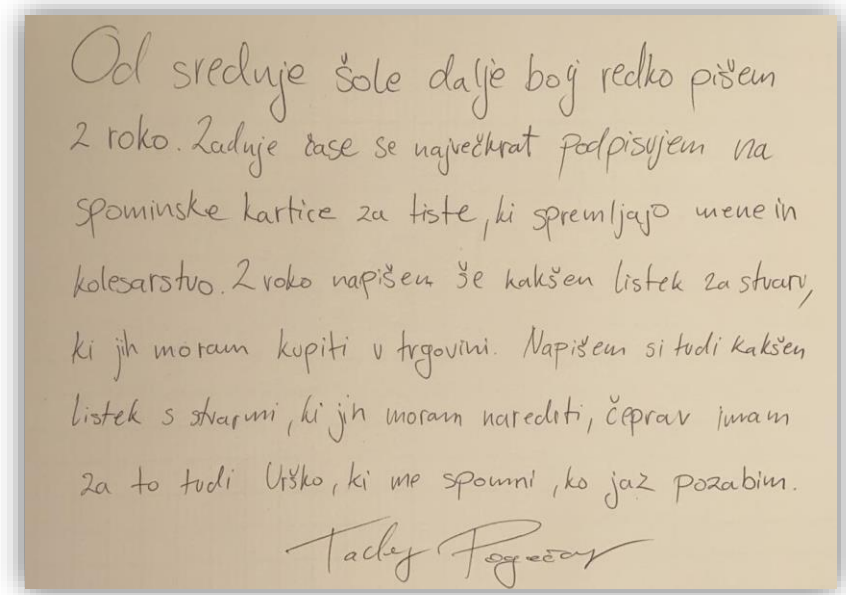 Od srednje šole dalje bolj redko pišem
z roko. Zadnje čase se največkrat podpisujem na
spominske kartice za tiste, ki spremljajo mene in
kolesarstvo. Z roko napišem še kakšen listek za stvari,
ki jih moram kupiti v trgovini. Napišem si tudi kakšen
listek s stvarmi, ki jih moram narediti, čeprav imam
za to tudi Urško, ki me spomni, ko jaz pozabim.
Tadej Pogačar